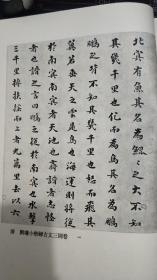 北冥有魚其名為鯤〻之大不知
其幾千里也化而為鳥其名為
鵬〻之背不知其幾千里也怒而飛其
翼若垂天之雲是鳥也海運則將徙
於南冥南冥者天池也齊諧者志怪
者也諧之言曰鵬之徙於南冥也水擊
三千里摶扶搖而上者九萬里去以六
清 劉墉小楷 古文三同卷 一